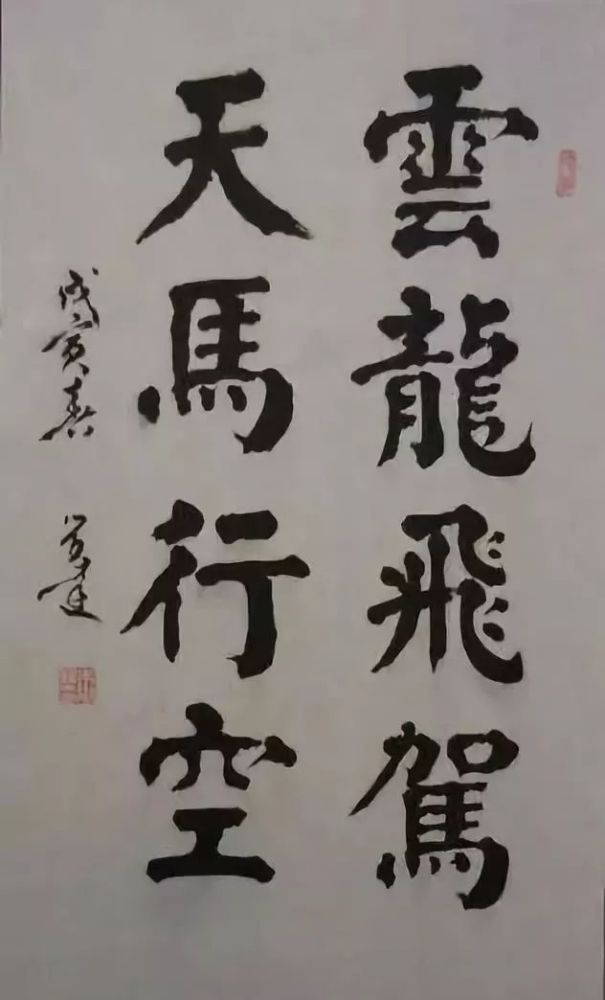 雲龍飛駕
天馬行空
戊寅春